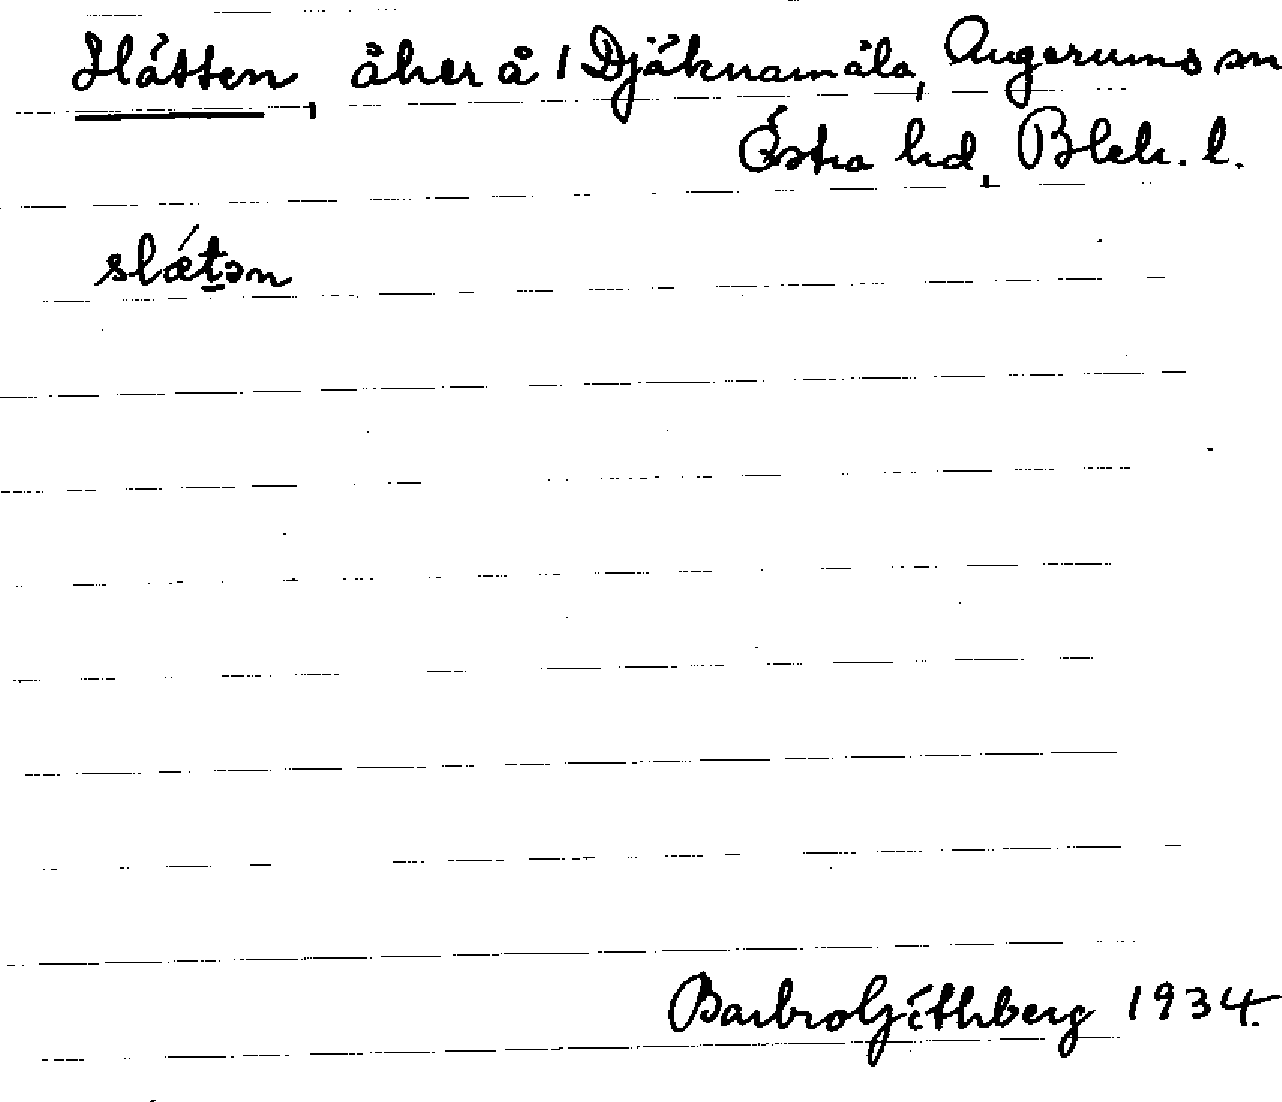 Slätten, åker å 1 Djäknamåla, Augerums sn
Östra hd, Blek. l.
slǽtən
Barbro Göthberg 1934.